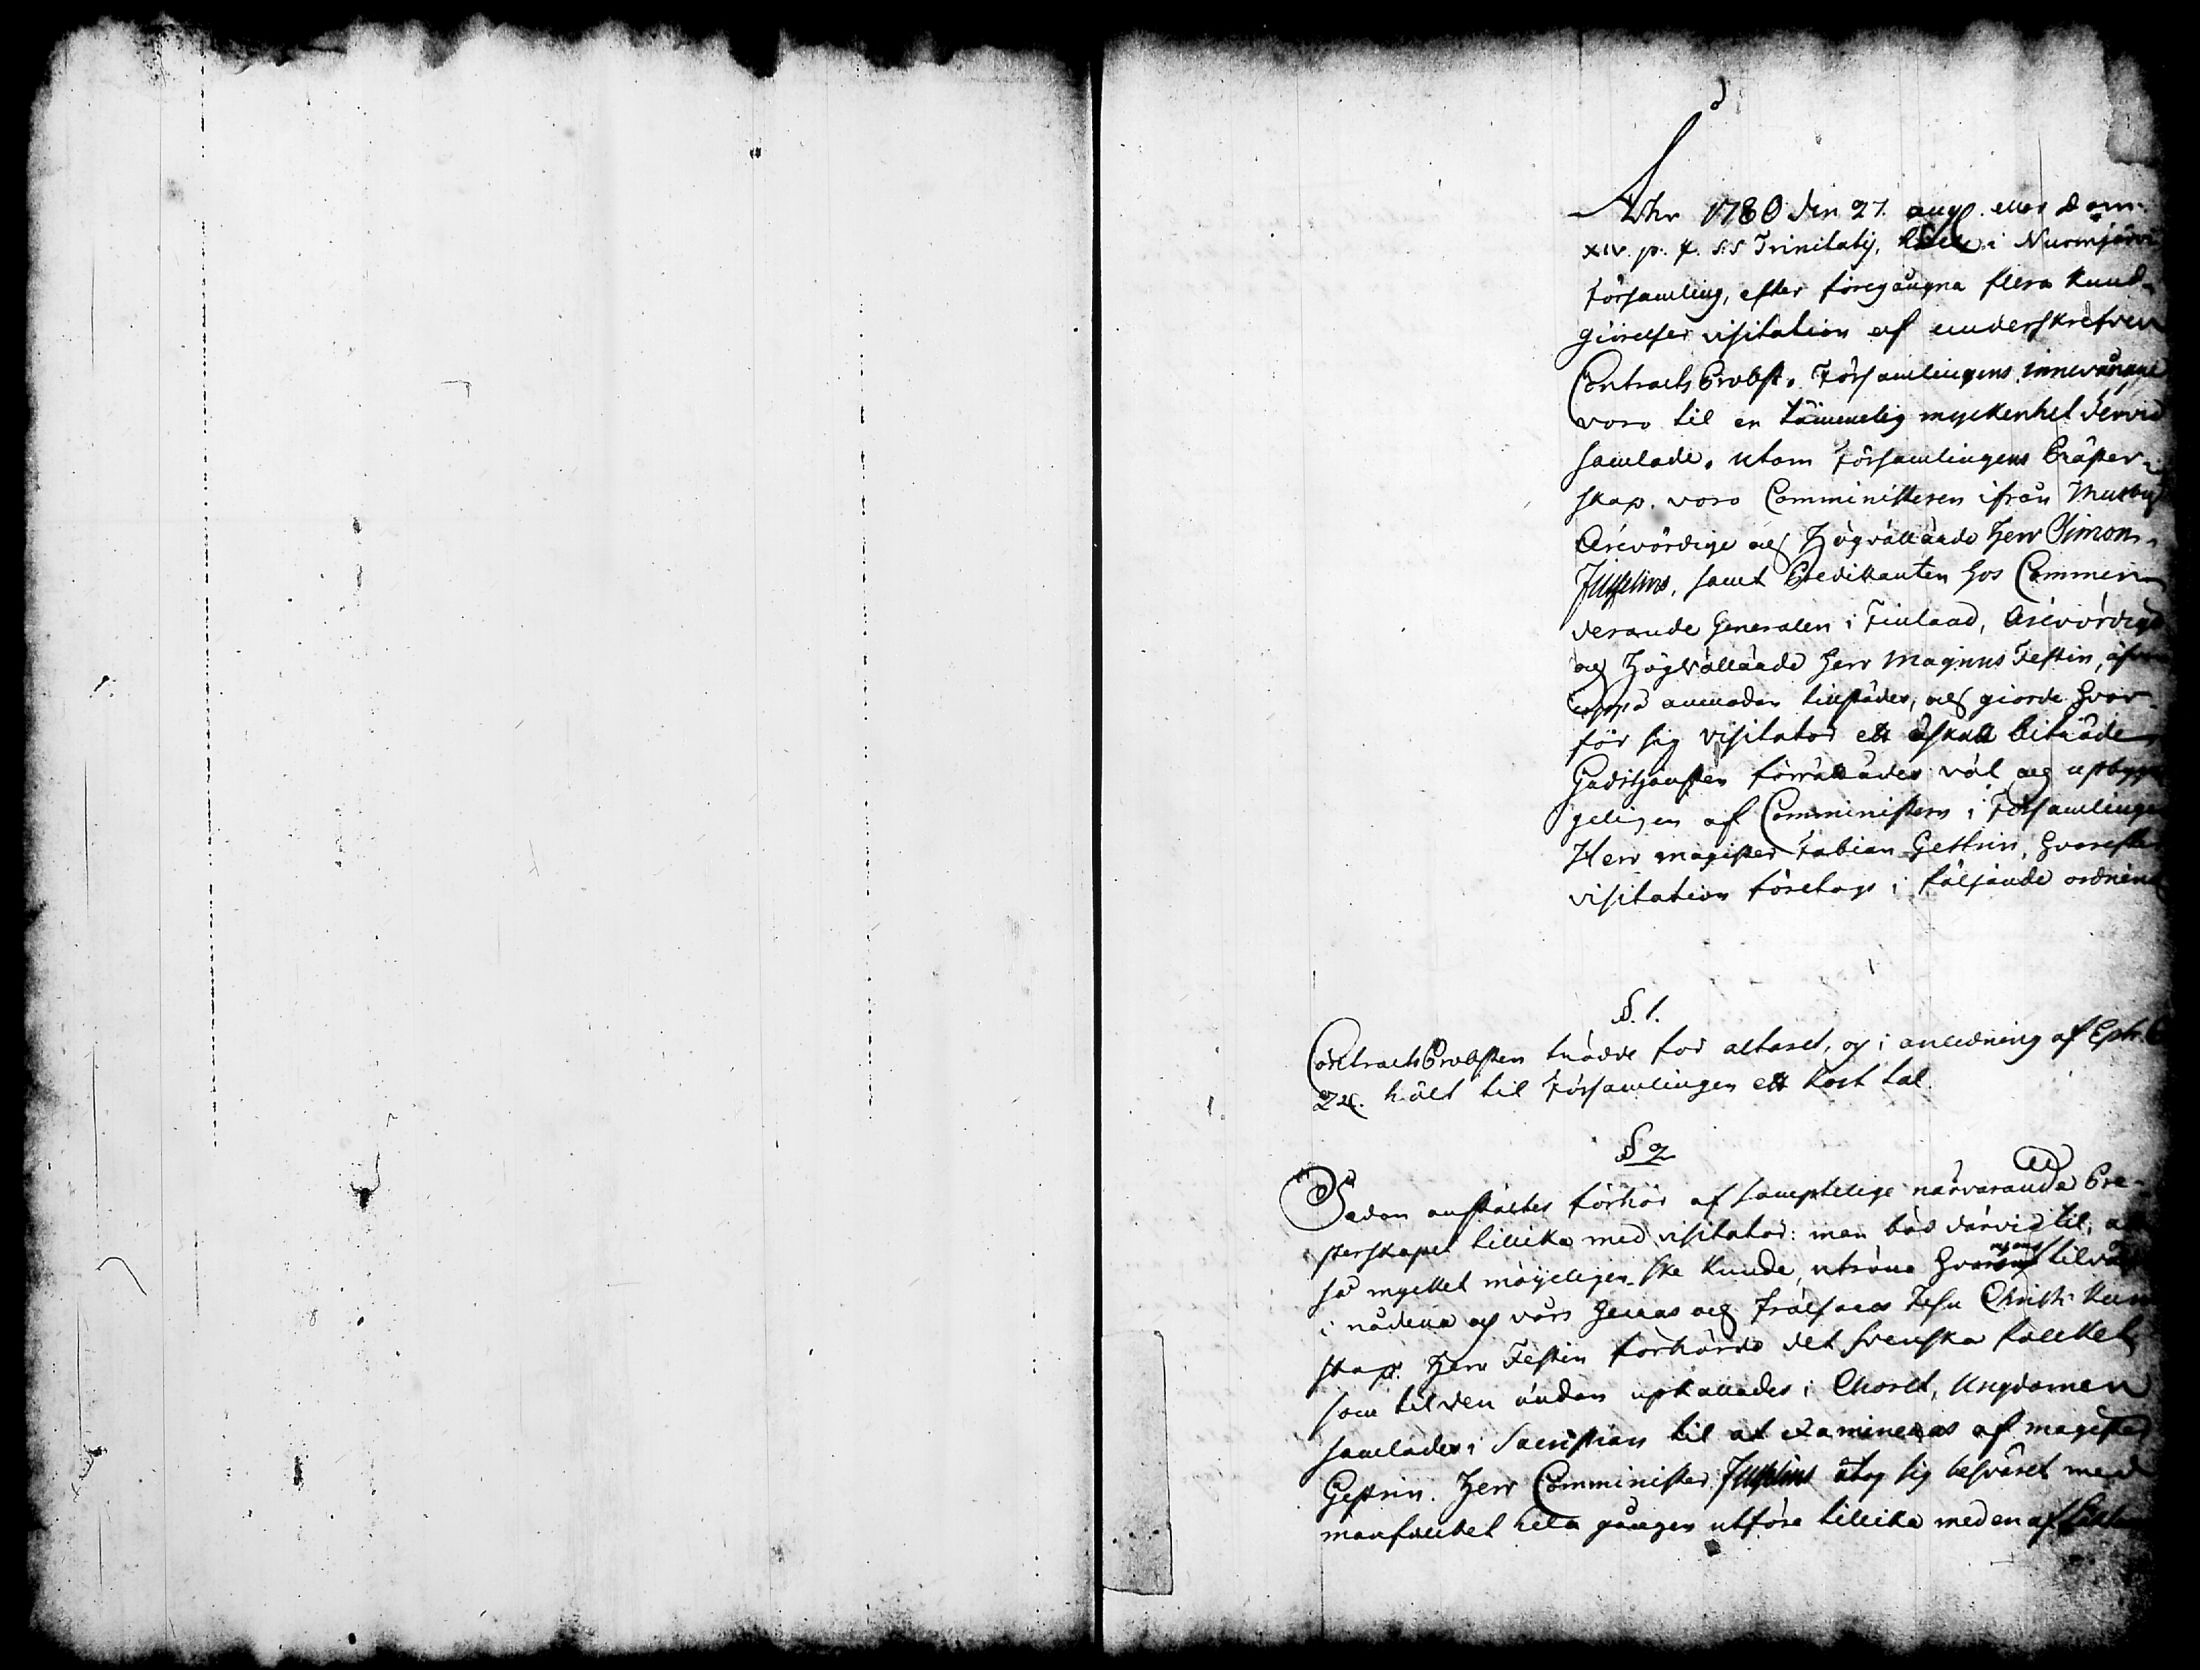 Åhr 1780 den 27. aug. eller Dom.
XIV. p. f. S:S Trinitatis, hölts i Nurmijärvi
Församling, efter föregångna flera kund-
giörelser visitation af underskrefven
Contracts Probst. Församlingens innevånare
voro til en tämmelig myckenhet dervid
samlade. utom Församlingens Präster-
skap. voro Comministeren ifrån
Ärevördige och Högvällärde Herr Simon
samt Predikanten hos Commen-
derande Generalen i Finland, Ärevördige
och Högvällärde Herr Magnus Festin, äfven
uppå anmodan tilstädes, och giorde hvar
för sig visitator ett önskadt biträde
Gudstjensten förrättades väl och upbygg-
geligen af Comministern i Församlingen
Herr magister Fabian Gestrin, hvarefter
visitation företogs i följande ordning
§. 1.
Contracts Probsten trädde for altaret, och i anledning af Eph. 6
24. hölt til Församlingen ett kort tal.
§ 2
Sedan anstältes förhör af samptelige närvarande Pre-
sterskapet tillika med visitator: man böd därvid til, at
så mycket möyeligen ske kunde, utröna hvars ens tilväxt
i nådena och vårs Herras och Frälsares Jesu Christi kun-
skap. Herr Festin förhörde det svenska folcket
som til den ändan upkallades i Choret, Ungdomen
samlades i Sacristian til at examineras af magister
Gestrin. Herr Comminister åtog sig besväret med
manfolcket hela gången utföre tillika med en af